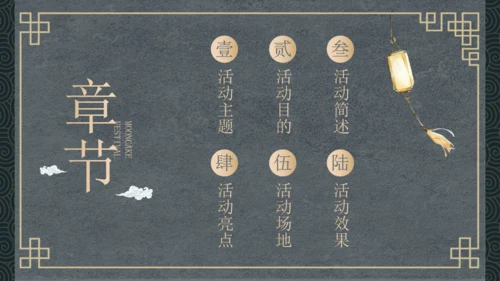 章节
MOONCAKE
FESTIVAL
壹
活动主题
贰
活动目的
叁
活动简述
肆
活动亮点
伍
活动场地
陆
活动效果